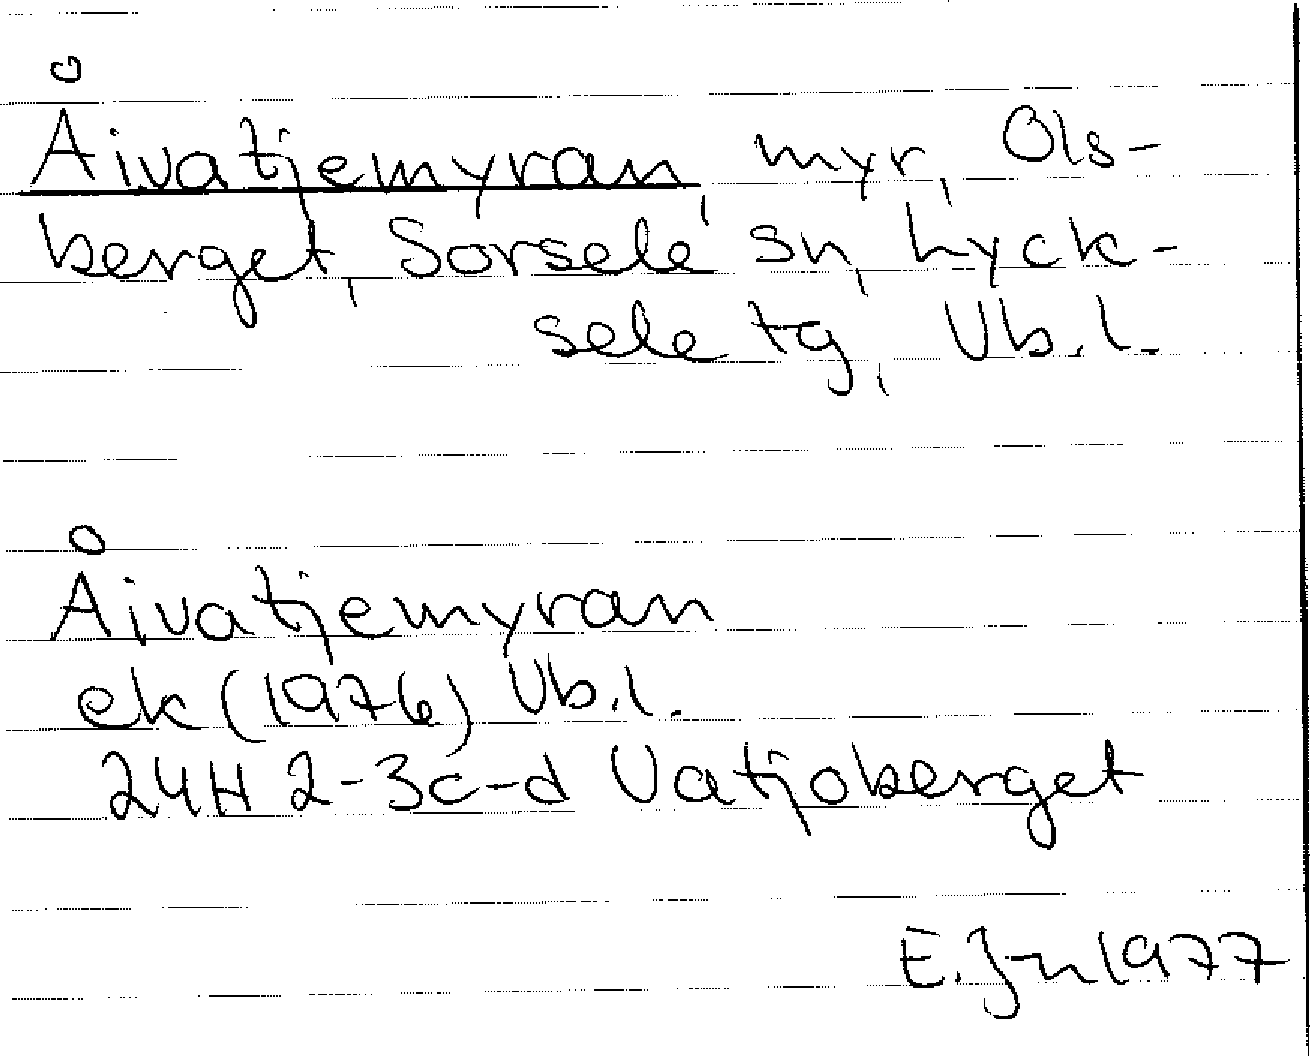 Åivatjemyran, myr, Ols-
berget, Sorsele sn, Lyck-
sele tg, Vb.l.
Åivatjemyran
ek (1976) Vb.l.
24H 2-3c-d Vatjoberget
E. Jn 1977